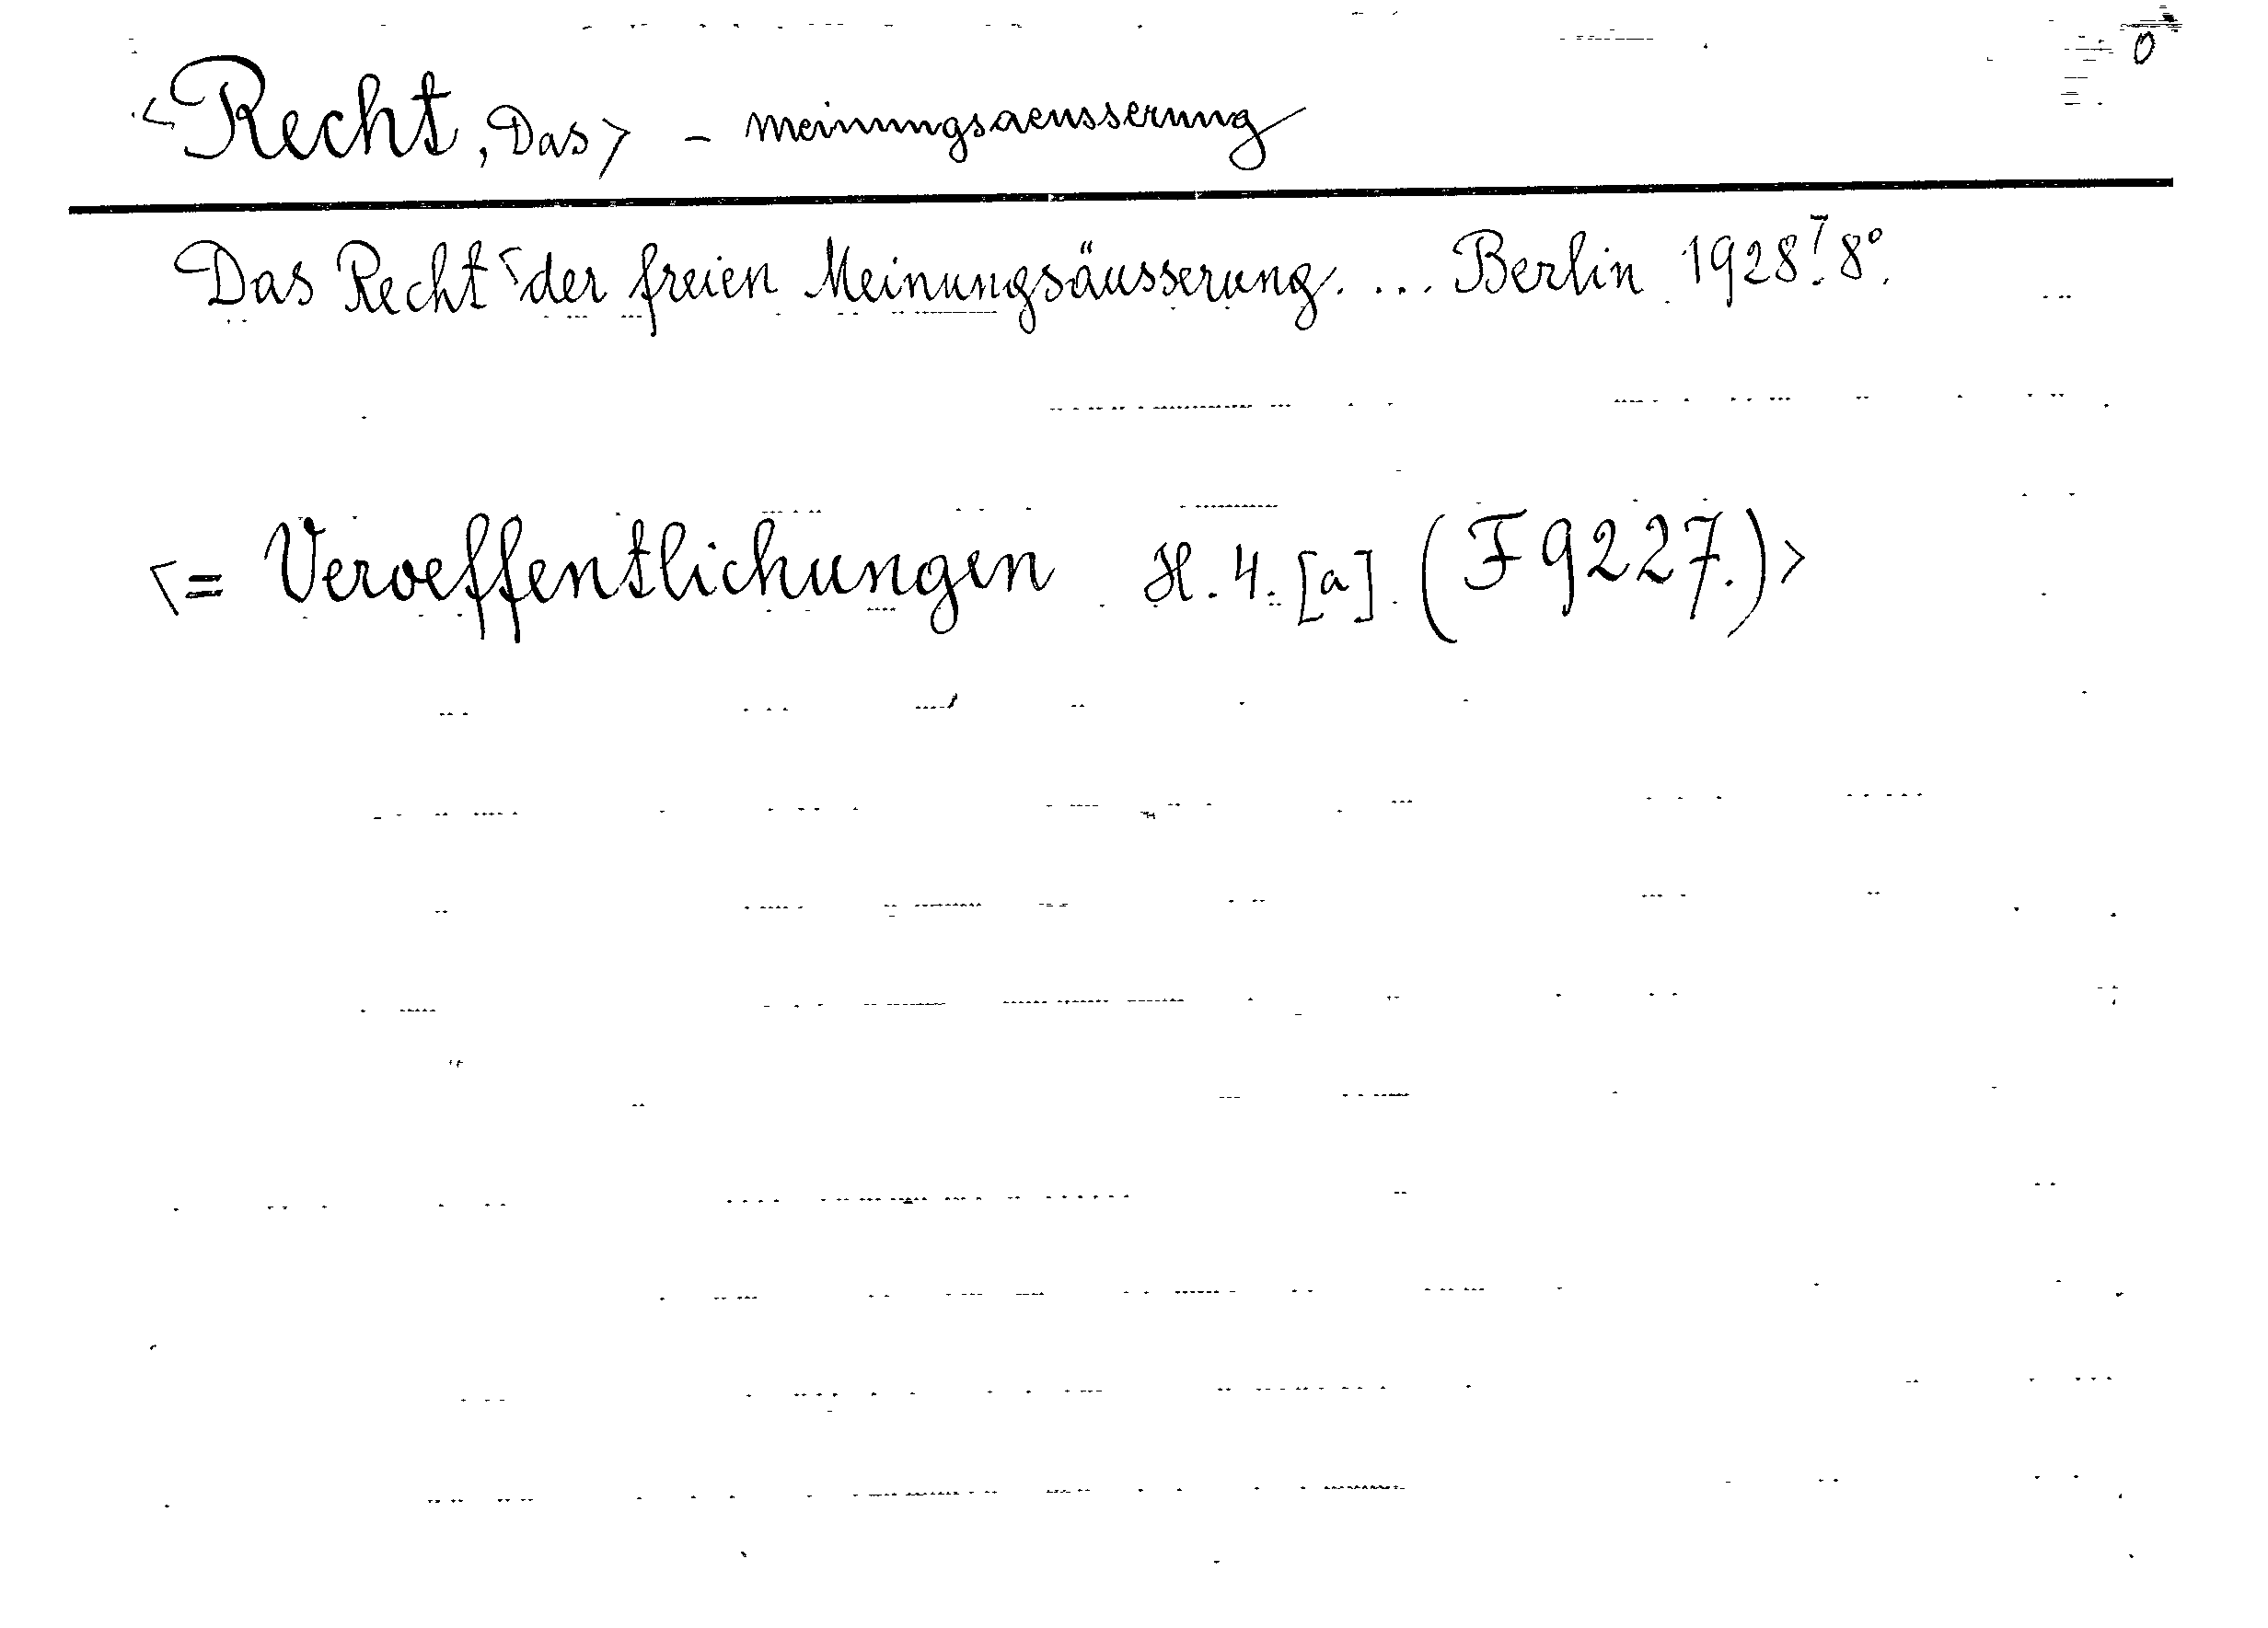 <Recht, Das> - meinungsaeusserung
Das Recht <der freien Meinungsäusserung. ... Berlin 1928.> 8°.
<= Veroeffentlichungen H. 4. [a]. (F 9227.)>